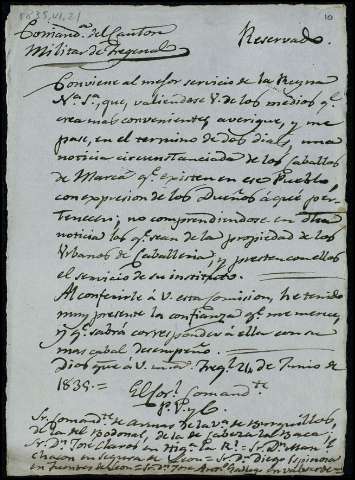 Comand.ª del Canton
Militar de Fregenal
Reservado.
10
Conviene al mejor servicio de la Reyna
N.ª S.ª, que, valiendose V. de los medios q.e
crea mas convenientes, averigue, y me
pase, en el termino de dos dias, una
noticia circunstanciada de los Caballos
de Marca q.e existen en ese Pueblo,
con expresion de los Dueños á qué per-
tenecen; no comprendiendose en dha
noticia los q.e sean de la propiedad de los
Urbanos de Caballeria, y presten con ellos
el servicio de su instituto.
Al conferirle á V. esta Comision, he tenido
muy presente la confianza q.e me merece,
y q.e sabrá corresponder á ella con su
mas cabal desempeño.
Dios gue á V. m.s a.s Freg.l 24 de Junio de
1835.=
El Cor.l Comand.te
Sr. Comand.te de Armas de la V.ª de Burguillos,
de la del Bodonal, de la de Cabeza la Baca=
S.r D.n Jose Claros en Hig.ª la R.l= S.r D.n Man.l
Chacon en Segura de Leon= S.r D.n Diego Espinosa
en Fuentes de Leon= S.r D.n Jose